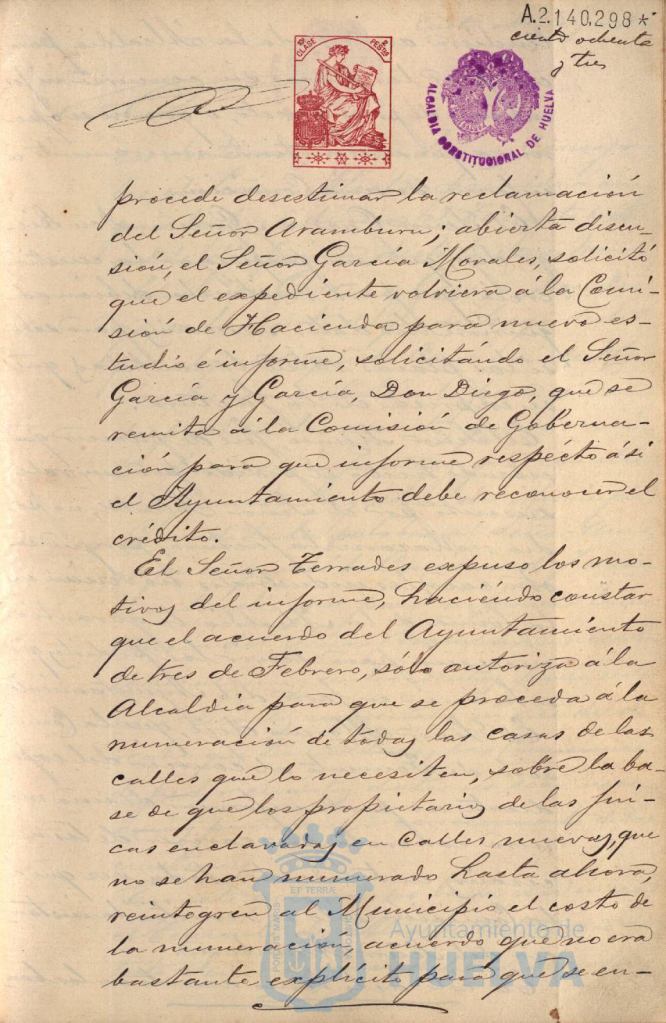 A.2.140,298*
ciento ochenta
y tres
10ª CLASE
2 PESTAS
ALCALDIA CONSTITUCIONAL DE HUELVA
procede desestimar la reclamación
del Señor Aramburu; abierta discu-
sión, el Señor García Morales, solicitó
que el expediente volviera á la Comi-
sión de Hacienda para nuevo es-
tudio é informe, solicitándo el Señor
García y García, Don Diego, que se
remita á la Comisión de Goberna-
ción para que informe respécto á si
el Ayuntamiento debe reconocer el
crédito.
El Señor Terrades expuso los mo-
tivos del informe, haciéndo constar
que el acuerdo del Ayuntamiento
de tres de Febrero, sólo autoriza á la
Alcaldia para que se proceda á la
numeración de todas las casas de las
calles que lo necesiten, sobre la ba-
se de que los propietarios de las fin-
cas enclavadas en calles nuevas, que
no se han numerado hasta ahora,
reintegren al Municipio el costo de
la numeración, acuerdo que no era
bastante explícito para que se en-
ET TERRÆ
Ayuntamiento de
HUELVA